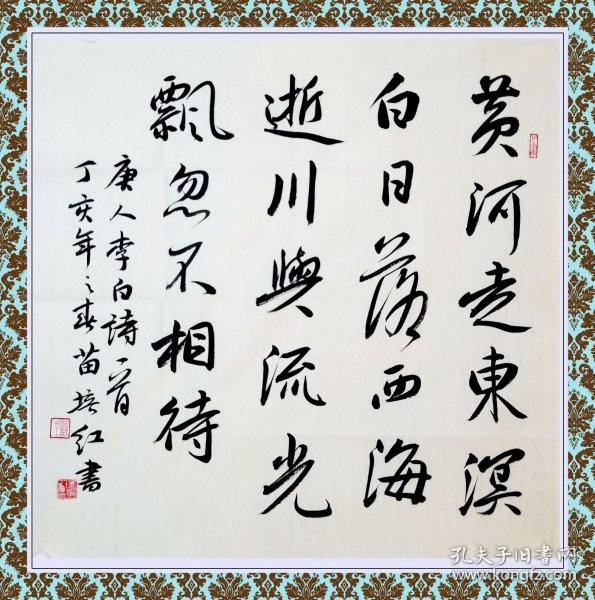 黄河走東溟
白日落西海
逝川與流光
飄忽不相待
唐人李白詩一首
丁亥年之春苗培红書
孔夫子旧书网
www.kongfz.com